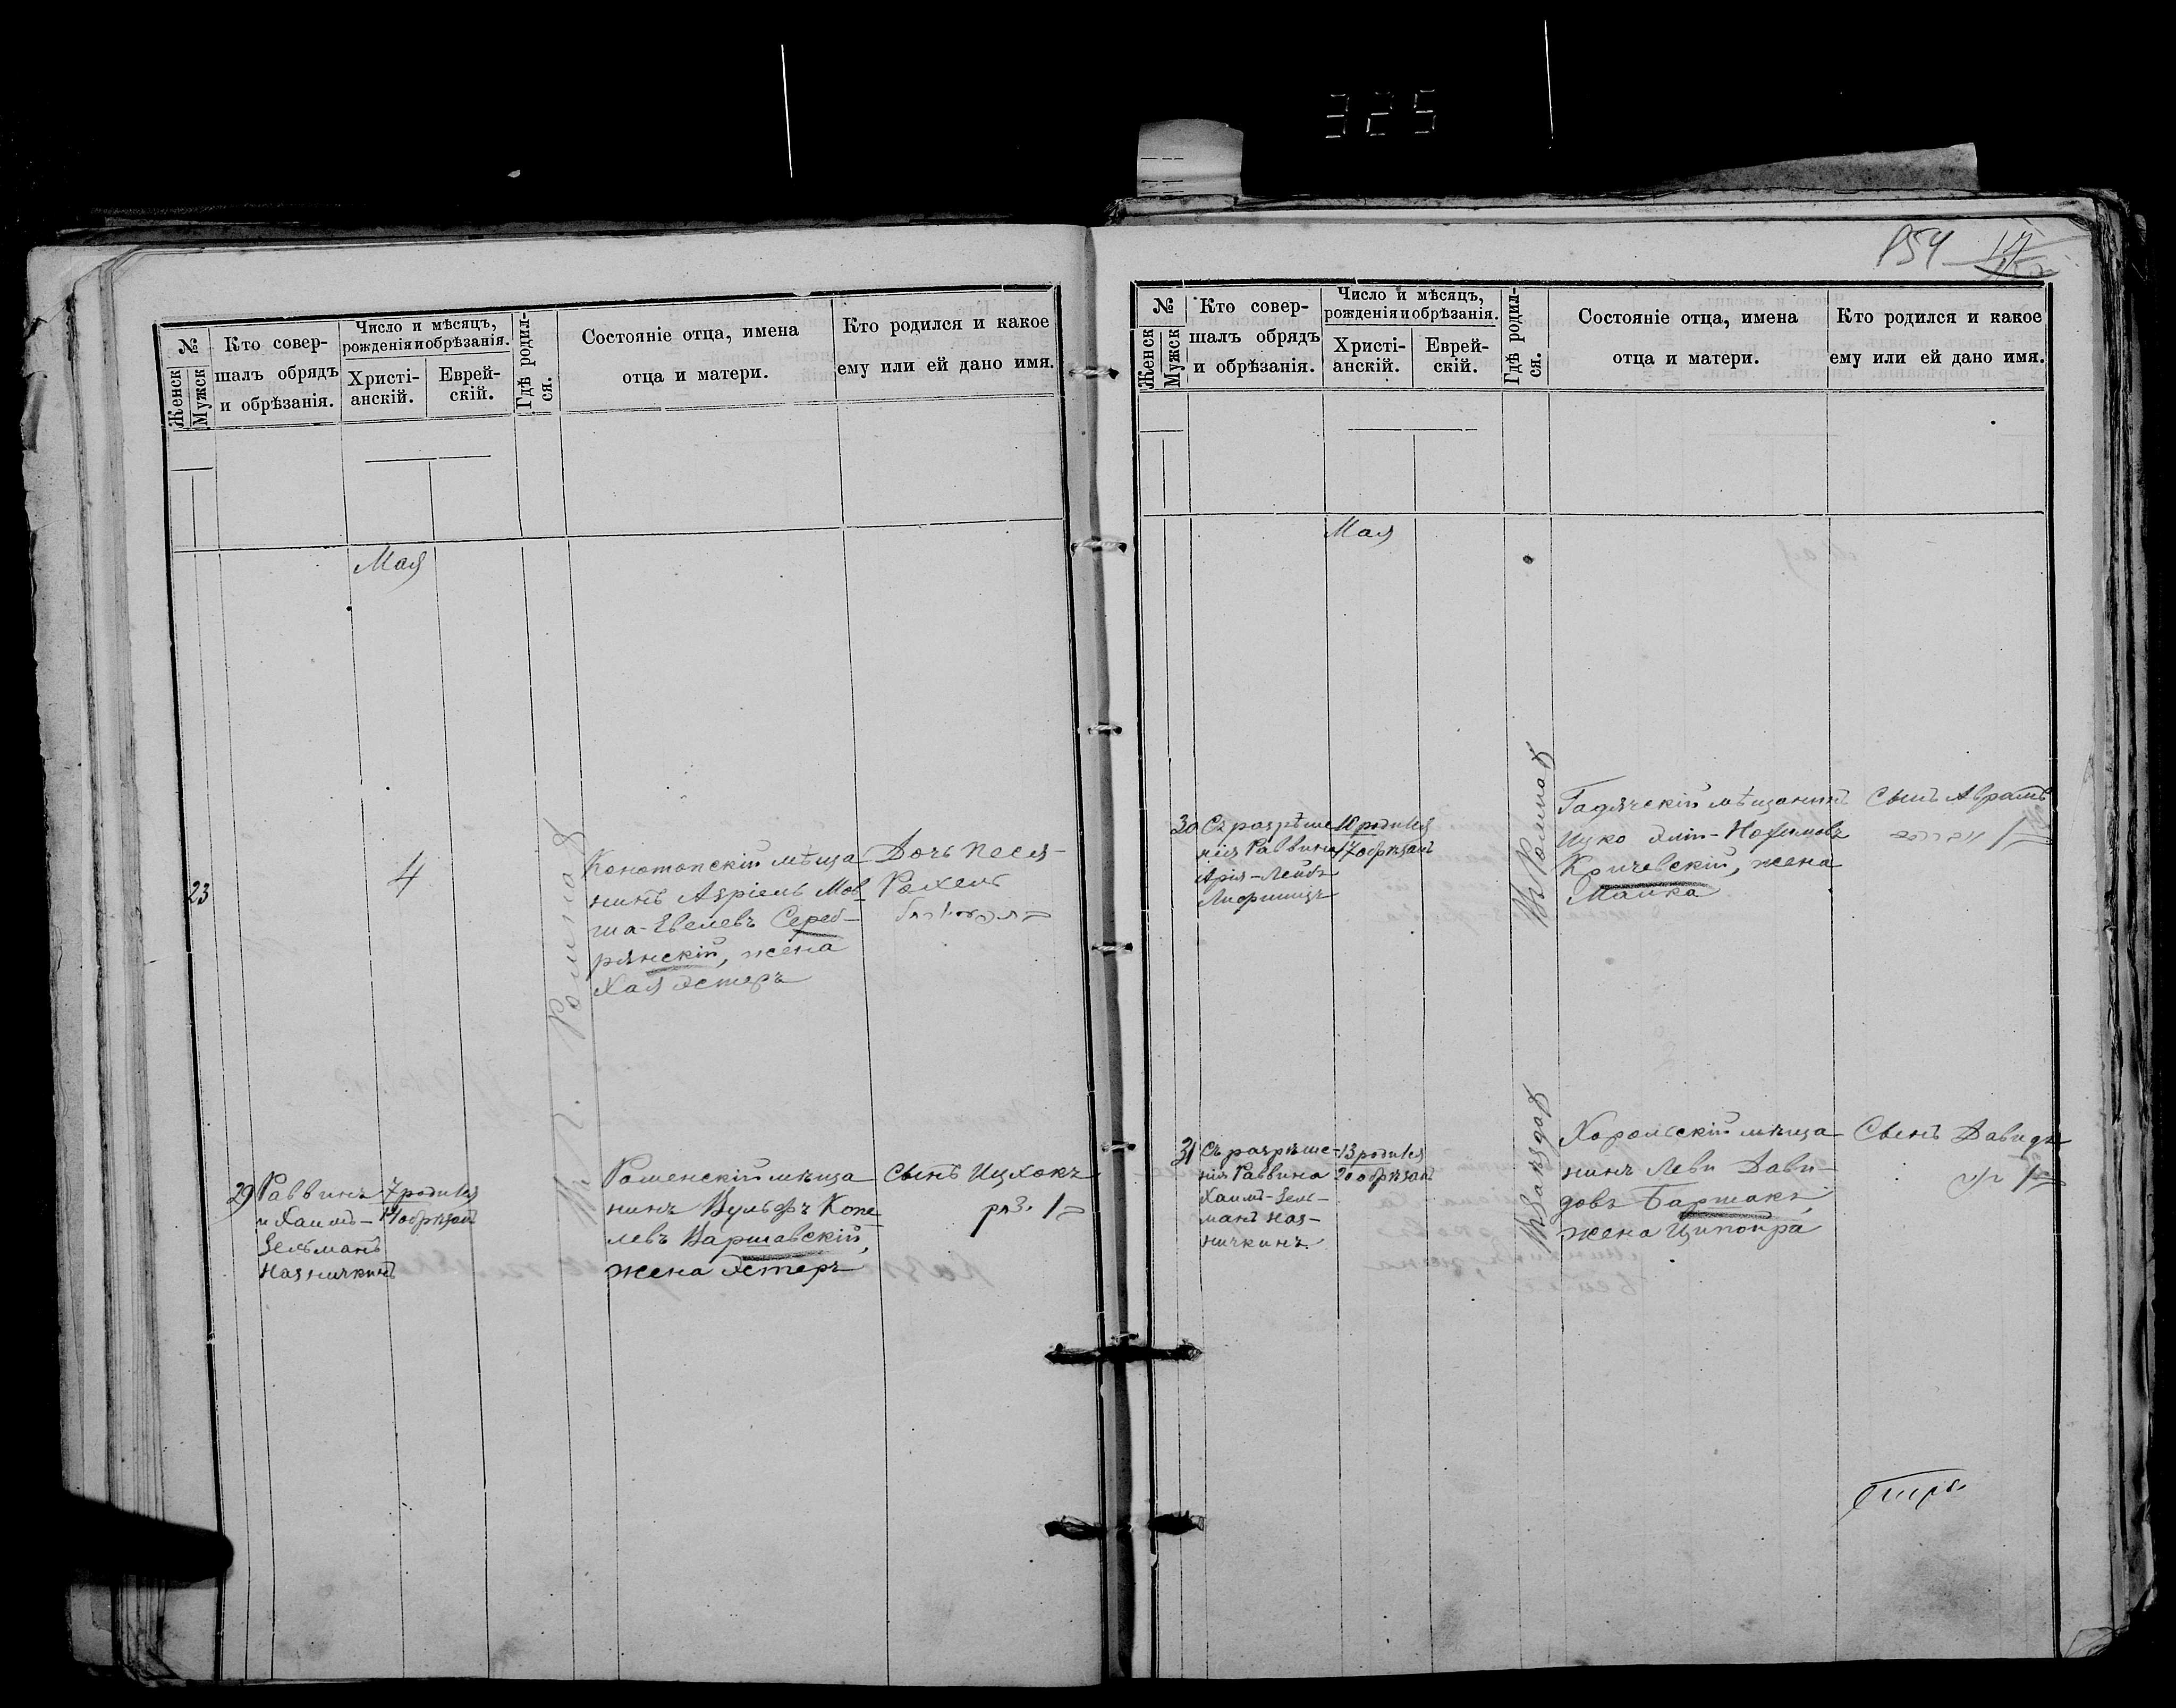 325
154
№
Женск
Мужск
Кто совер-
шалъ обрядъ
и обрѣзанія.
Число и мѣсяцъ,
рожденія и обрѣзанія.
Христі-
анскій.
Еврей-
скій.
Гдѣ родил-
ся.
Состояніе отца, имена
отца и матери.
Кто родился и какое
ему или ей дано имя.
Мая
23
4
Конотопскій мѣща
нинъ Азріель Мов
ша-Евелевъ Сереб-
рянскій, жена
Хая Эстеръ
Дочь Песя-
Рохель
Ромнах
29
Раввинъ
и Хаимъ-
Зельманъ
Назничкинъ
7 родился
14 обрѣзанъ
Роменскій мѣща
нинъ Вульфъ Копе
левъ Варшавскій,
жена Эстеръ
Сынъ Ицхокъ
№
Женск
Мужск
Кто совер-
шалъ обрядъ
и обрѣзанія.
Число и мѣсяцъ,
рожденія и обрѣзанія.
Христі-
анскій.
Еврей-
скій.
Гдѣ родил-
ся.
Состояніе отца, имена
отца и матери.
Кто родился и какое
ему или ей дано имя.
Мая
30
Съ разрѣше
нія Раввина
Арія-Лейбъ
Лифшицъ
10 родился
17 обрѣзанъ
Гадячскій мѣщанинъ
Ицко Эліи-Нохимовъ
Кричевскій, жена
Малка
Сынъ Аврамъ
31
Съ разрѣше-
нія Раввина
Хаимъ-Зель-
манъ Наз-
ничкинъ
13 родился
20 обрѣзанъ
Хорольскій мѣща
нинъ Леви Дави-
довъ Бартакъ,
жена Ципойра
Сынъ Давидъ